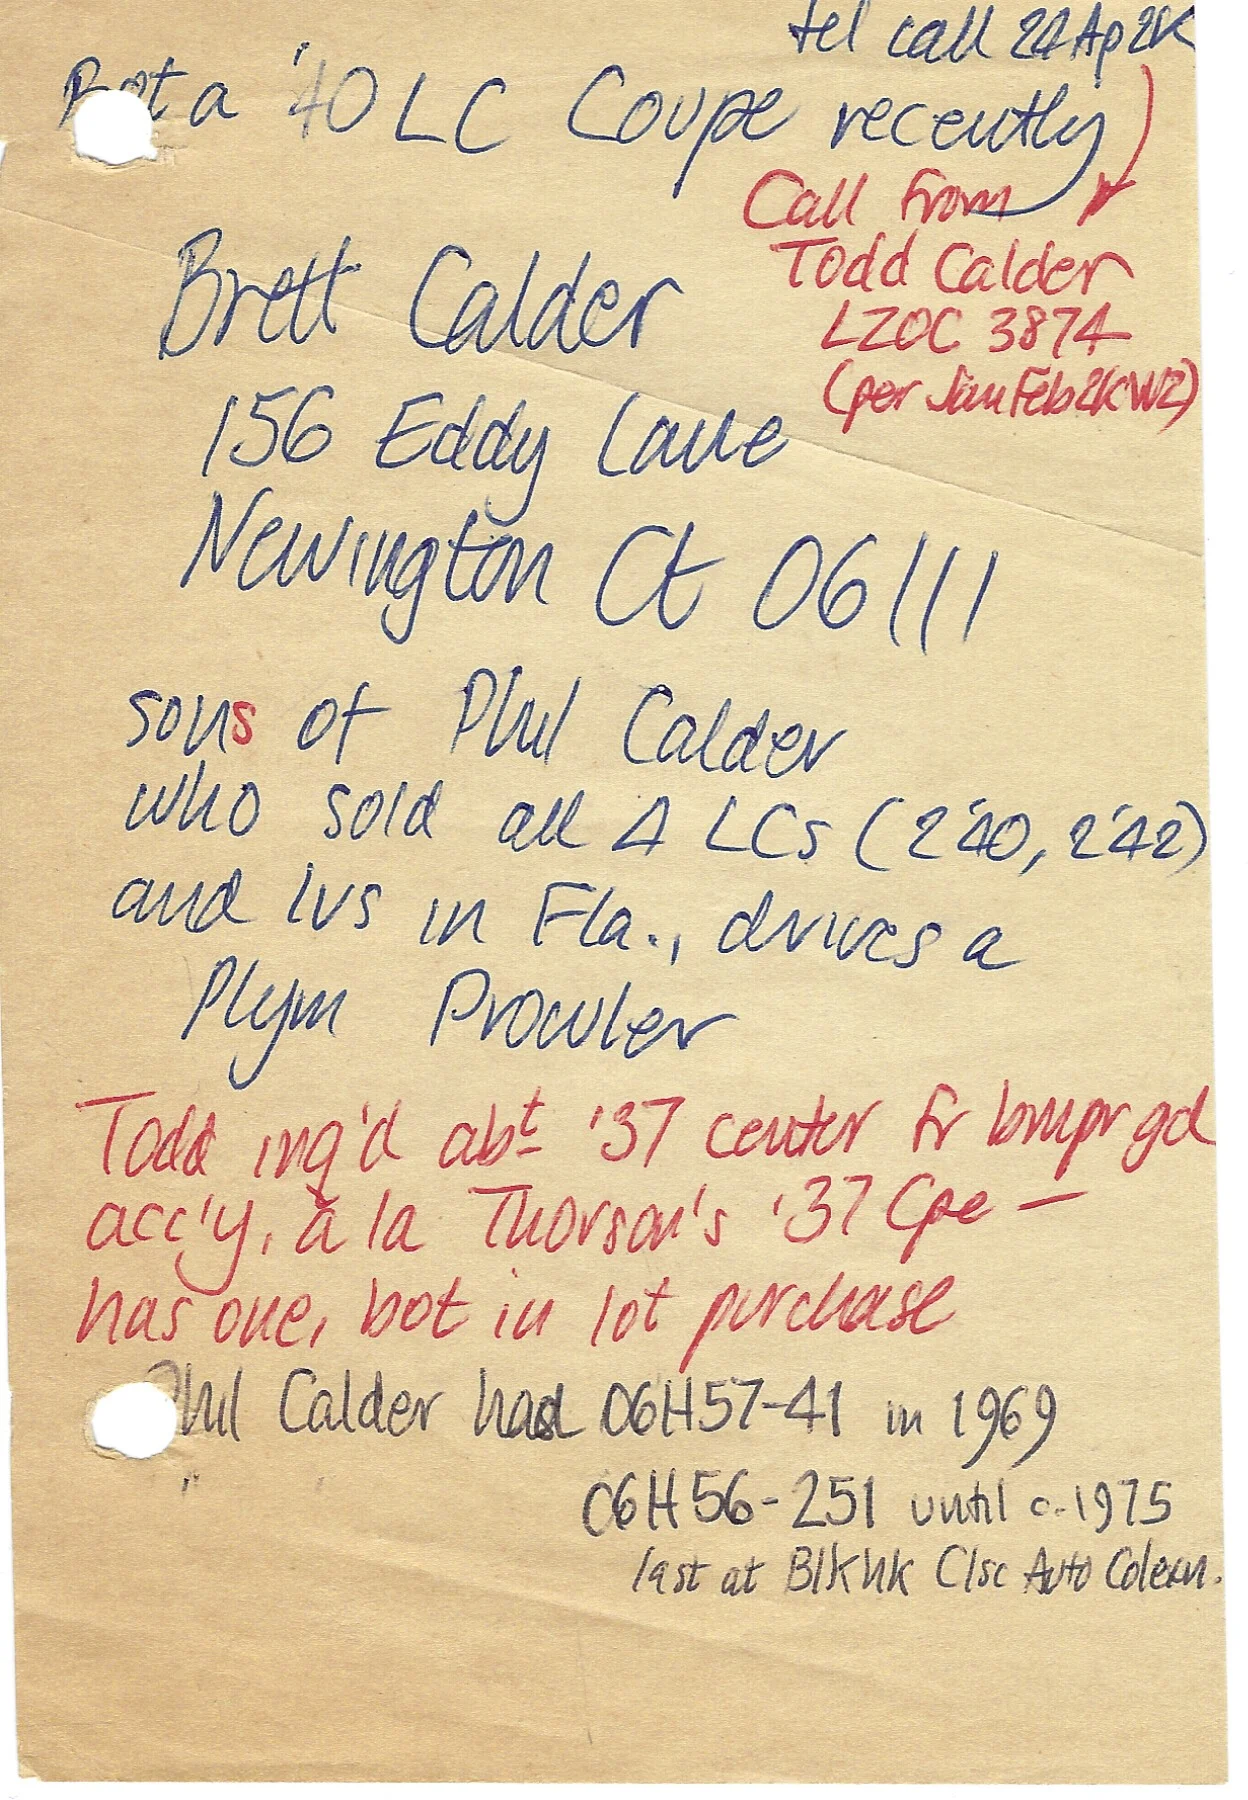 tel call 24 Ap 2K
Bot a '40 LC Coupe recently
Call from
Todd Calder
LZOC 3874
(per JanFeb2KWZ)
Brett Calder
156 Eddy Lane
Newington Ct 06111
sons of Phil Calder
who sold all 4 LCs (2'40, 2'42)
and lvs in Fla., drives a
Plym Prowler
Todd inq'd abt '37 center fr bmpr gd
acc'y, à la Thorson's '37 Cpe —
has one, bot in lot purchase
Phil Calder had 06H57-41 in 1969
" 06H56-251 until c. 1975
last at Blkhk Clsc Auto Colexn.